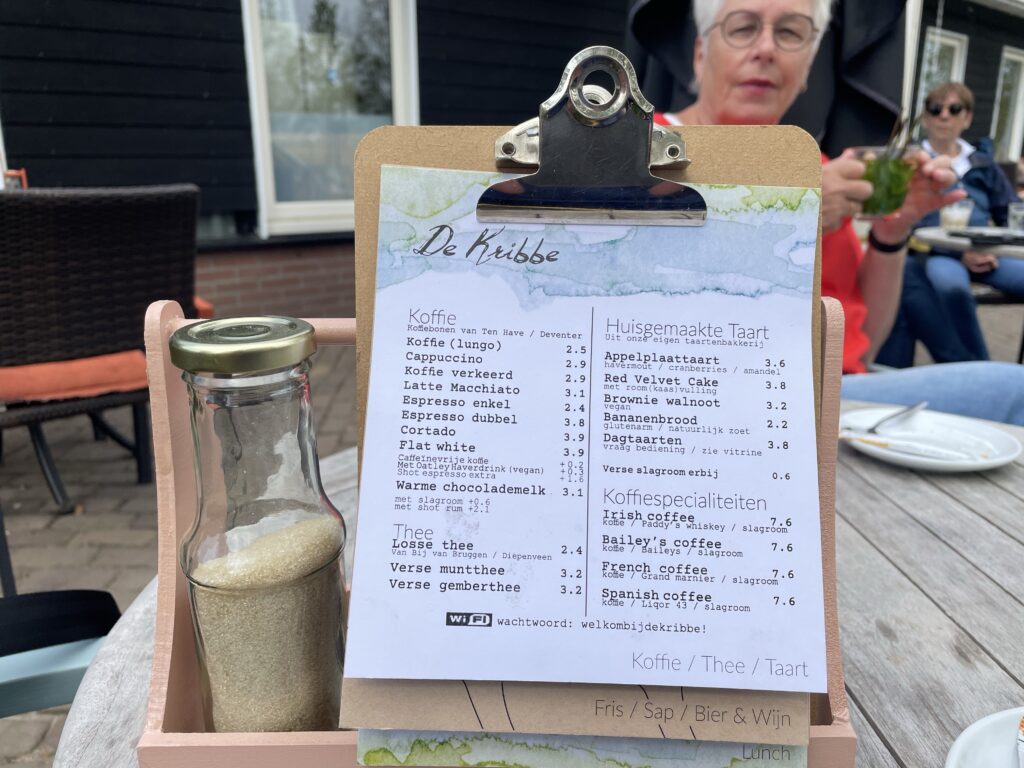 De Kribbe
Koffie
Koffiebonen van Ten Have / Deventer
Koffie (lungo) 2.5
Cappuccino 2.9
Koffie verkeerd 2.9
Latte Macchiato 3.1
Espresso enkel 2.4
Espresso dubbel 3.8
Cortado 3.9
Flat white 3.9
Caffeïnevrije koffie +0.2
Met Oatley Haverdrink (vegan) +0.3
Shot espresso extra +1.6
Warme chocolademelk 3.1
met slagroom +0.6
met shot rum +2.1
Thee
Losse thee 2.4
Van Bij van Bruggen / Diepenveen
Verse muntthee 3.2
Verse gemberthee 3.2
Huisgemaakte Taart
Uit onze eigen taartenbakkerij
Appelplaattaart 3.6
havermout / cranberries / amandel
Red Velvet Cake 3.8
met room(kaas)vulling
Brownie walnoot 3.2
vegan
Bananenbrood 2.2
glutenarm / natuurlijk zoet
Dagtaarten 3.8
vraag bediening / zie vitrine
Verse slagroom erbij 0.6
Koffiespecialiteiten
Irish coffee 7.6
koffie / Paddy's whiskey / slagroom
Bailey's coffee 7.6
koffie / Baileys / slagroom
French coffee 7.6
koffie / Grand marnier / slagroom
Spanish coffee 7.6
koffie / Liqor 43 / slagroom
WiFi wachtwoord: welkombijdekribbe!
Koffie / Thee / Taart
Fris / Sap / Bier & Wijn
Lunch